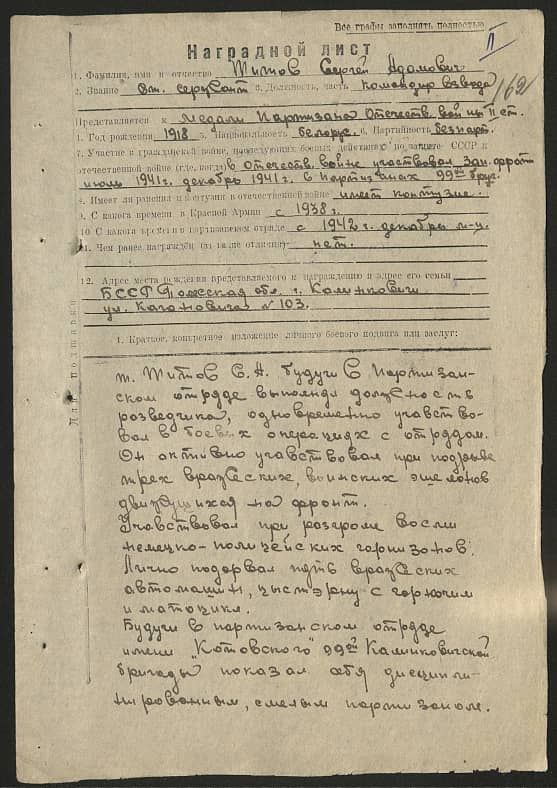 Все графы заполнять полностью
II
Наградной лист
162
1. Фамилия, имя и отчество Титов Сергей Адамович
2. Звание ст. сержант 3. Должность, часть командир взвода
Представляется к медали Партизана Отечеств. войны II ст.
4. Год рождения 1918 5. Национальность белорус 6. Партийность безпарт.
7. Участие в гражданской войне, последующих боевых действиях по защите СССР и
отечественной войне (где, когда) в Отечеств. войне участвовал зап. фронт
июль 1941г. декабрь 1941г. в партизанах 99ой бриг.
8. Имеет ли ранения и контузии в отечественной войне имеет контузие.
9. С какого времени в Красной Армии с 1938 г.
10. С какого времени в партизанском отряде с 1942 г. декабрь м-ц.
11. Чем ранее награжден (за какие отличия) нет.
12. Адрес места рождения представляемого к награждению и адрес его семьи
БССР Полесская обл. г. Калинковичи
ул. Кагановича № 103.
Для подшивки
1. Краткое, конкретное изложение личного боевого подвига или заслуг:
т. Титов С. А. будучи в партизан-
ском отряде выполнял должность
разведчика, одновременно учавство-
вал в боевых операциях с отрядом.
Он активно учавствовал при подрыве
трех вражеских, воинских эшелонов
движущихся на фронт.
Учавствовал при розгроме восми
немецко-полицейских горнизонов.
Лично подорвал пять вражеских
автомашин, цыстэрну с горючим
и матоцикл.
Будучи в партизанском отряде
имени "Котовского" 99ой Калинковичской
бригады показал себя дисципли-
нированным, смелым партизаном.